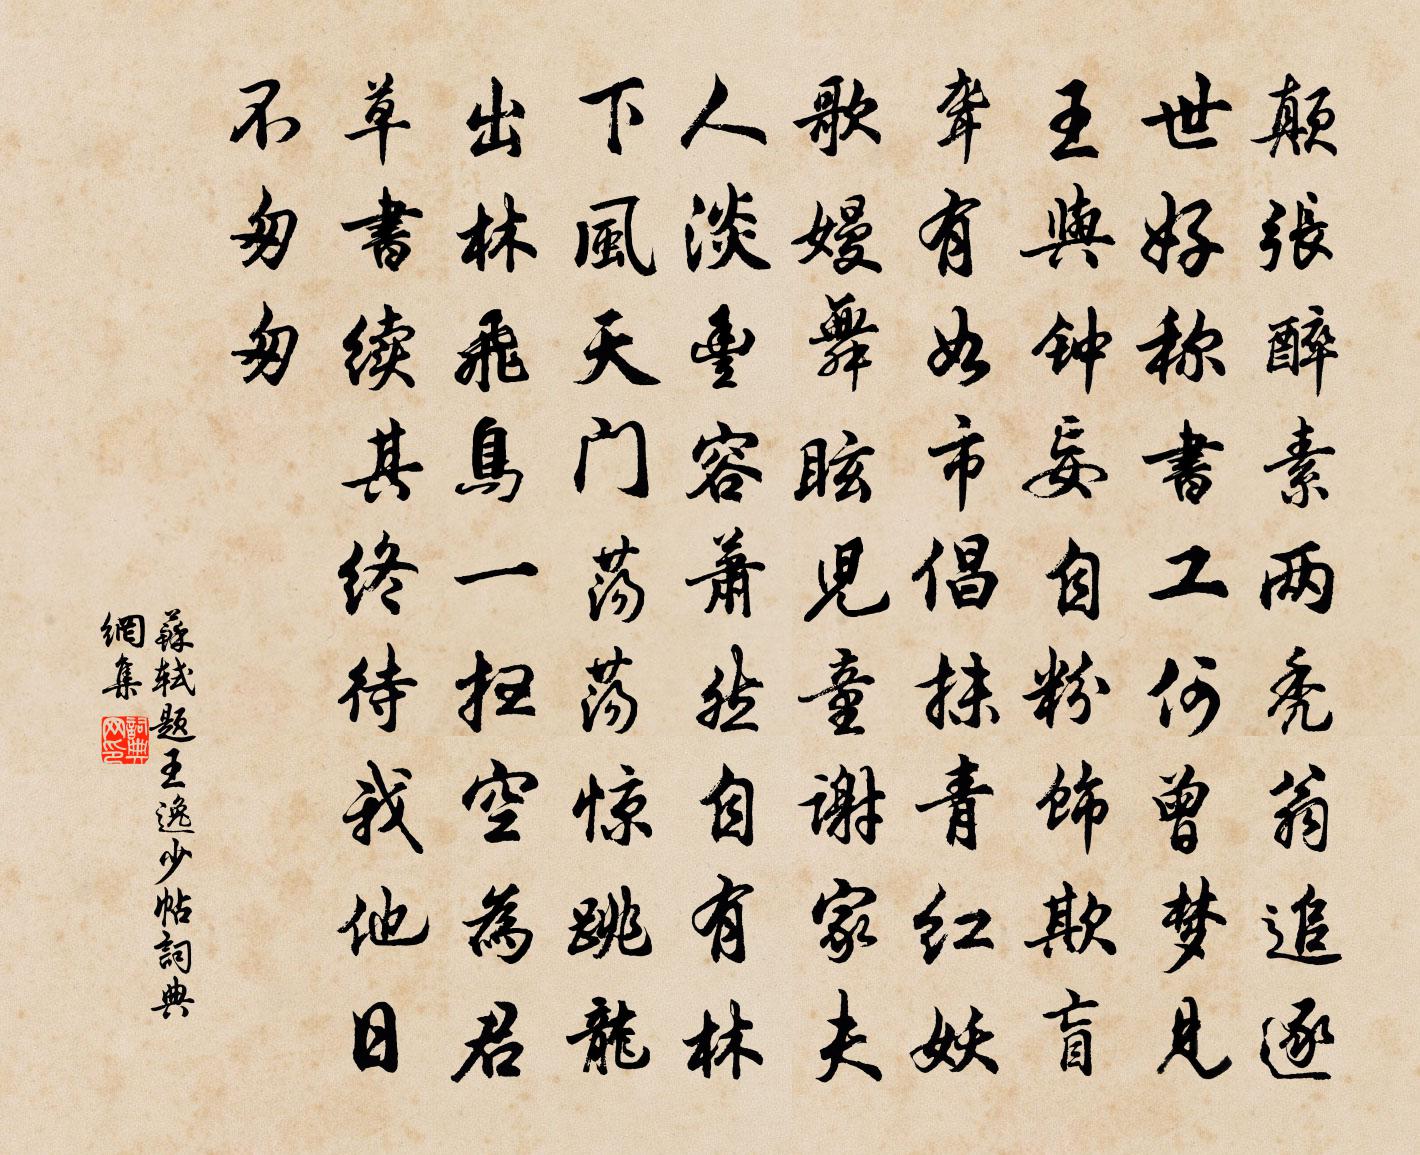 顛張醉素两秃翁追逐
世好称書工何曾梦見
王與钟妄自粉飾欺盲
聋有如市倡抹青红妖
歌嫚舞眩児童謝家夫
人淡豊容萧然自有林
下風天门荡荡惊跳龍
出林飛鳥一扫空為君
草書续其终待我他日
不匆匆
蘇轼题王逸少帖詞典
網集
詞典网印